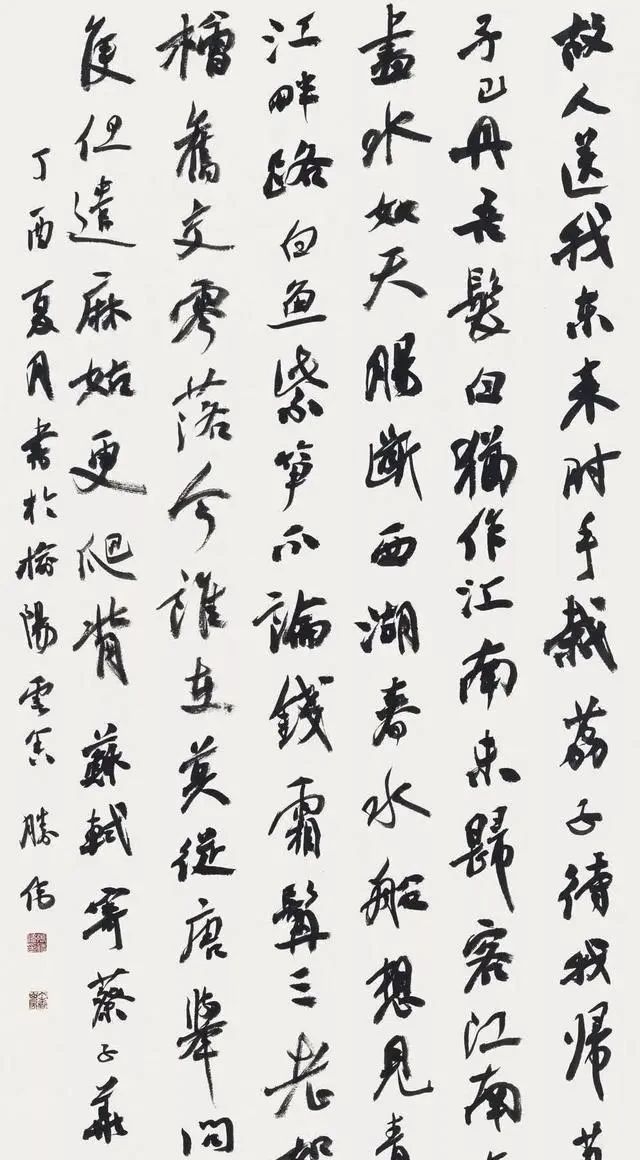 故人送我东来时手栽荔子待我帰荔
子已丹吾髮白猶作江南未歸客江南
盡水如天腸斷西湖春水船想見青
江畔路白魚紫筍不論錢霜髯三老如
檜舊交零落今誰在莫從唐舉問
侯但遣麻姑更爬背 蘇軾寄蔡子華
丁酉夏月書於榆陽雲 勝偉